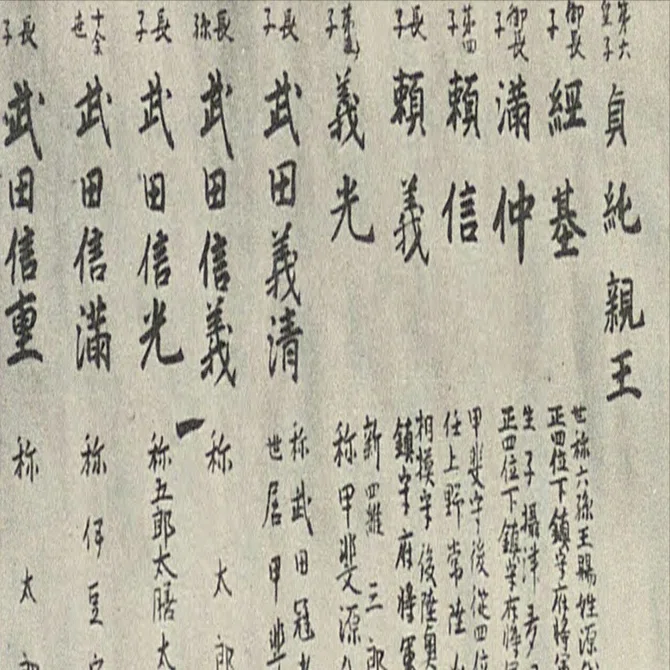 第六皇子 貞純親王
御長子 經基 世称六孫王賜姓源
正四位下鎮守府将軍
御長子 滿仲 生子攝津多
正四位下鎮守府将
第四子 頼信 甲斐守後從四位
任上野常陸
長子 頼義 相摸守後陸奥
鎮守府将軍
子 義光 新四郎 三郎
称甲斐源
長子 武田義清 称武田冠者
世居甲斐
長孫 武田信義 称太郎
長子 武田信光 一称五郎太膳大
十余世 武田信滿 称伊豆守
長子 武田信重 称太郎